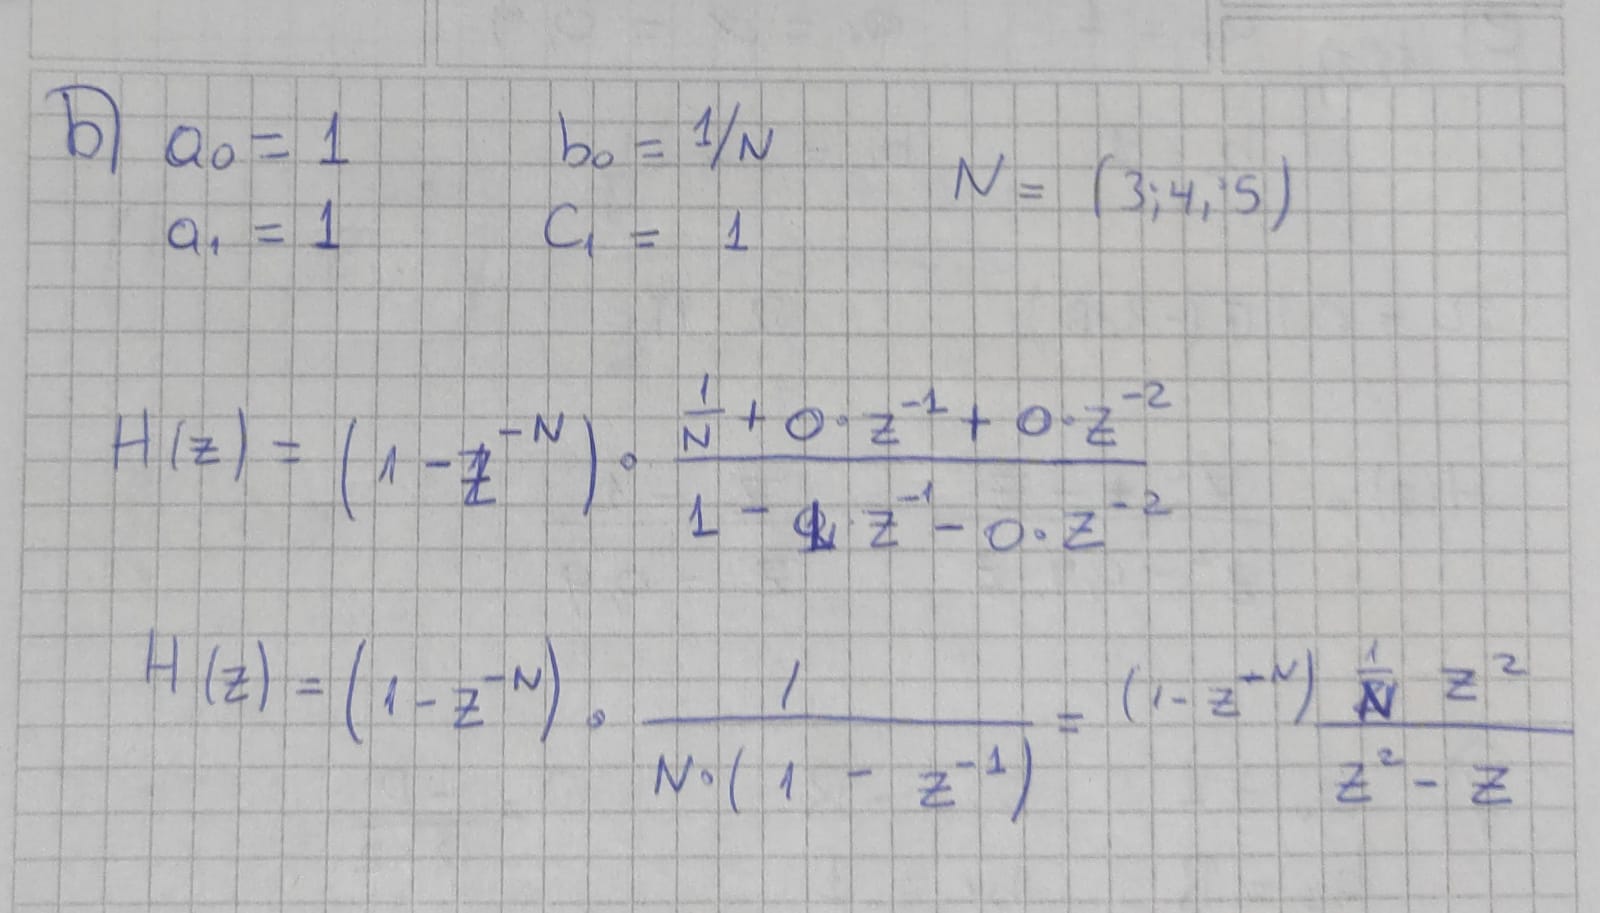 b) a₀ = 1 b₀ = 1/N N = (3; 4, 5)
a₁ = 1 C₁ = 1
H(z) = (1 - z^-N) · (1/N + 0 · z^-1 + 0 · z^-2) / (1 - 1 · z^-1 - 0 · z^-2)
H(z) = (1 - z^-N) · 1 / (N · (1 - z^-1)) = (1 - z^-N) (1/N z^2) / (z^2 - z)